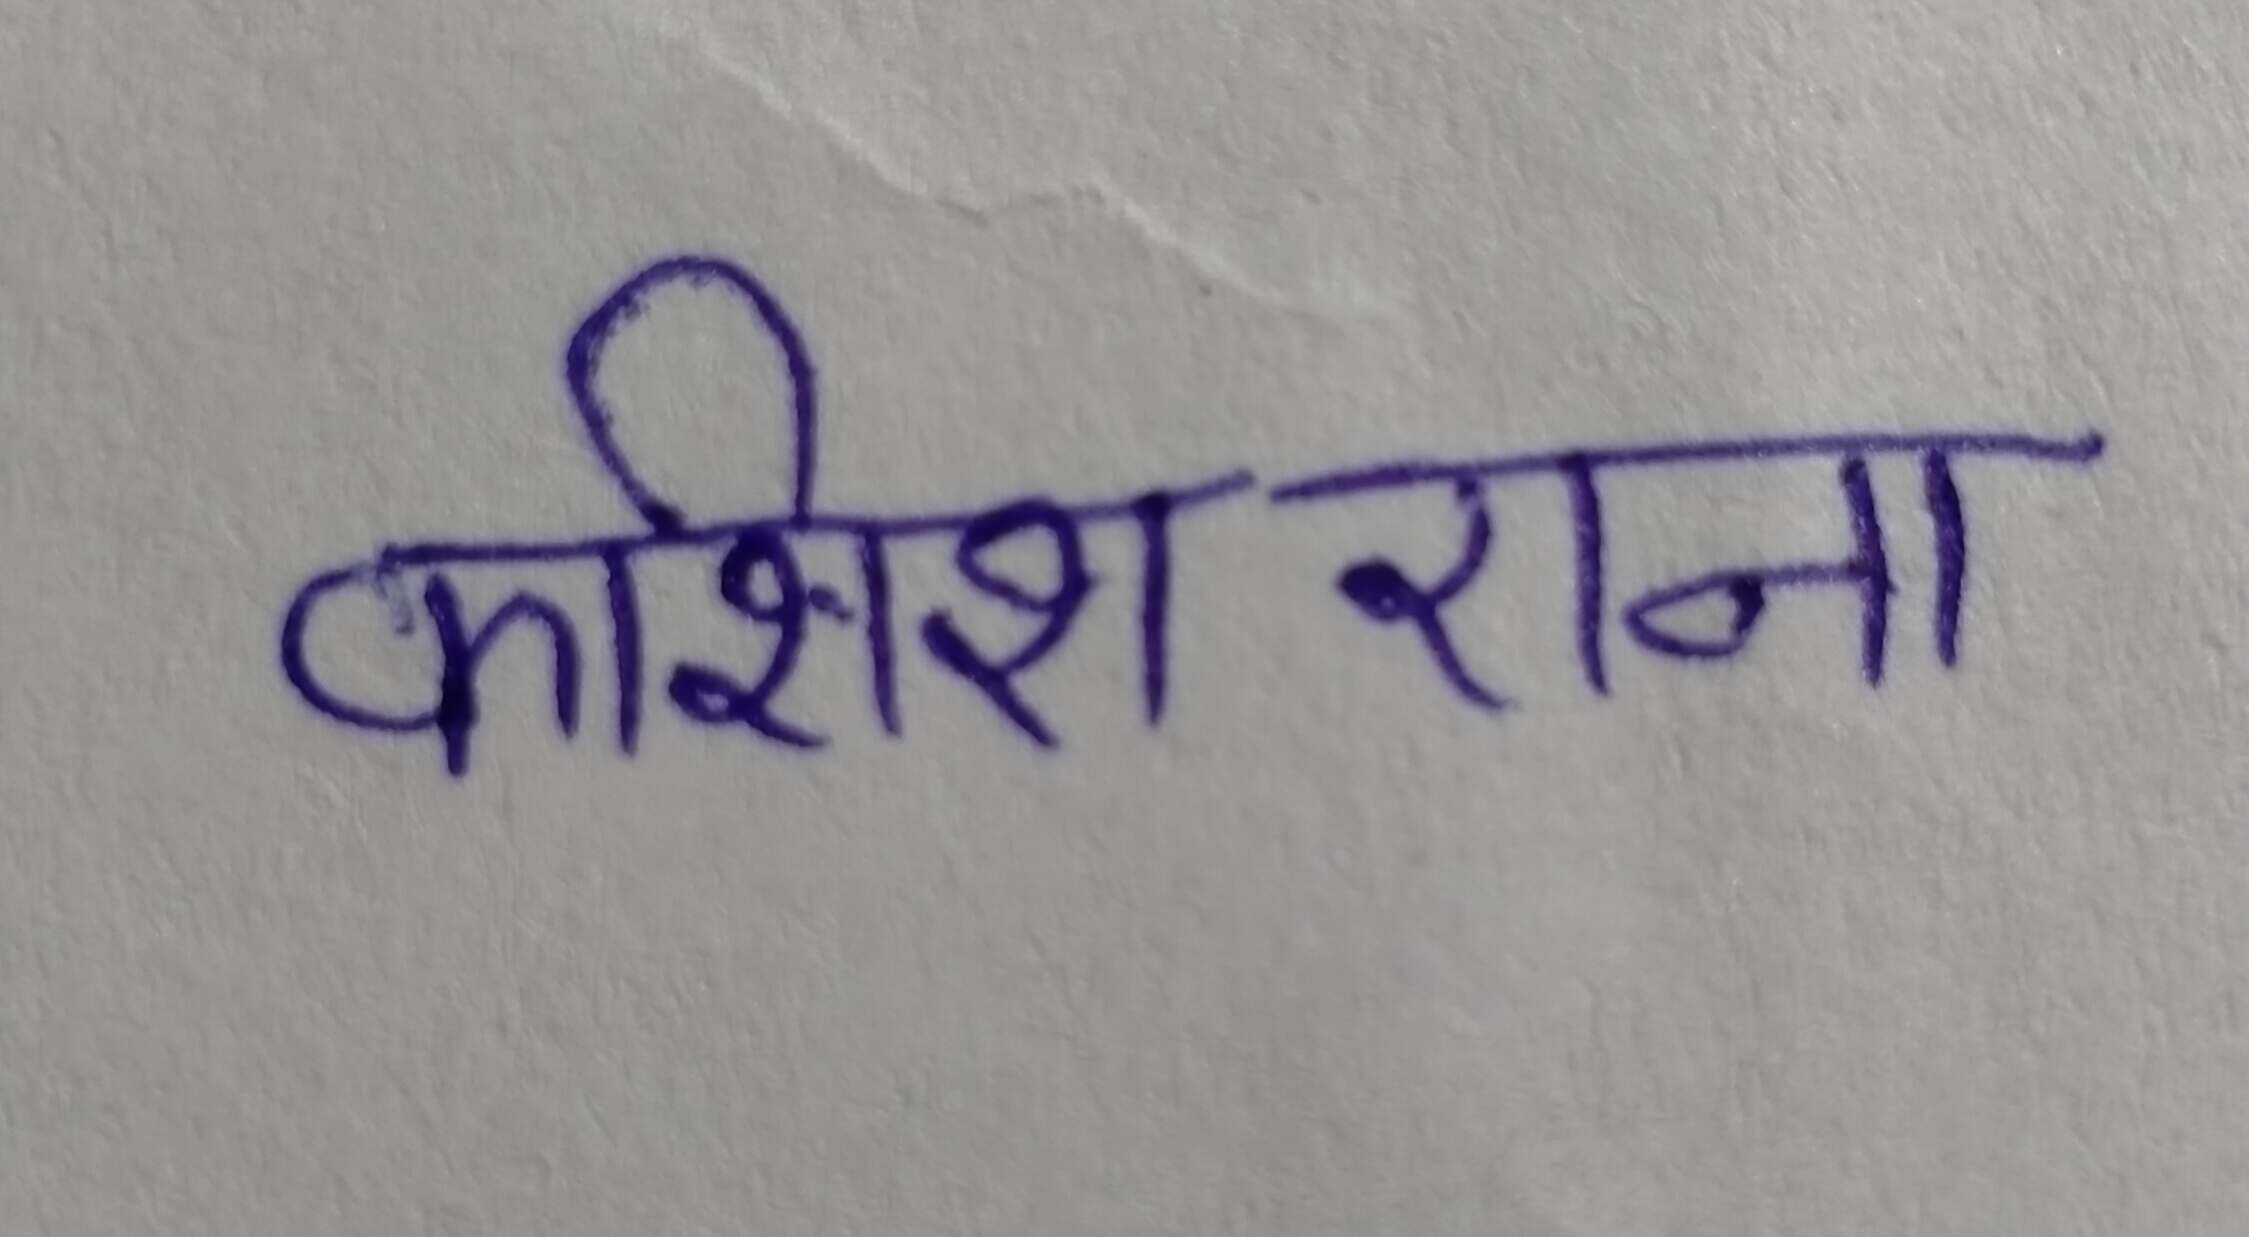 कशिश राना